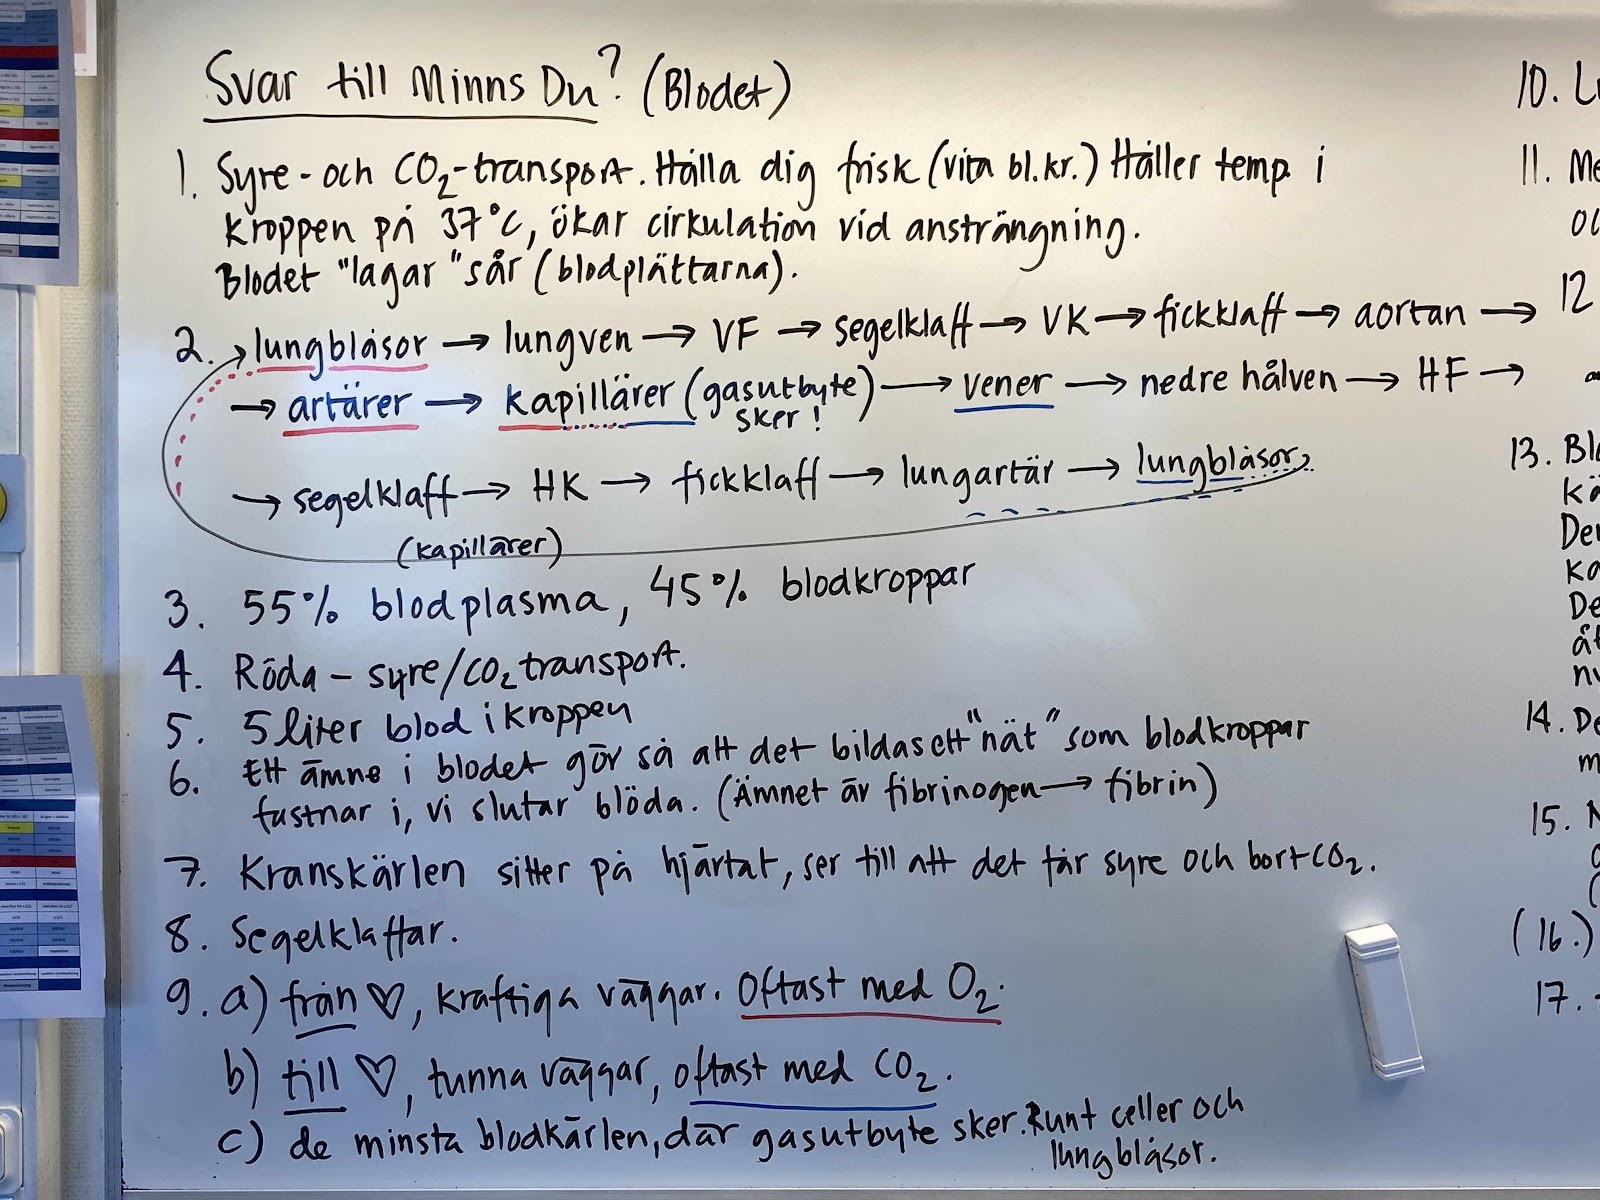 Svar till Minns Du? (Blodet)
1. Syre- och CO₂-transport. Hålla dig frisk (vita bl.kr.) Håller temp. i
kroppen på 37°C, ökar cirkulation vid ansträngning.
Blodet "lagar" sår (blodplättarna).
2. → lungblåsor → lungven → VF → segelklaff → VK → fickklaff → aortan →
→ artärer → kapillärer (gasutbyte → vener → nedre hålven → HF →
sker!)
→ segelklaff → HK → fickklaff → lungartär → lungblåsor
(kapillärer)
3. 55% blodplasma, 45% blodkroppar
4. Röda – syre/CO₂ transport.
5. 5 liter blod i kroppen
6. Ett ämne i blodet gör så att det bildas ett "nät" som blodkroppar
fastnar i, vi slutar blöda. (Ämnet är fibrinogen → fibrin)
7. Kranskärlen sitter på hjärtat, ser till att det får syre och bort CO₂.
8. Segelklaffar.
9. a) från ♡, kraftiga väggar. Oftast med O₂.
b) till ♡, tunna väggar, oftast med CO₂.
c) de minsta blodkärlen, där gasutbyte sker. Runt celler och
lungblåsor.
10.
11.
12
13.
14. De
15.
(16.)
17.